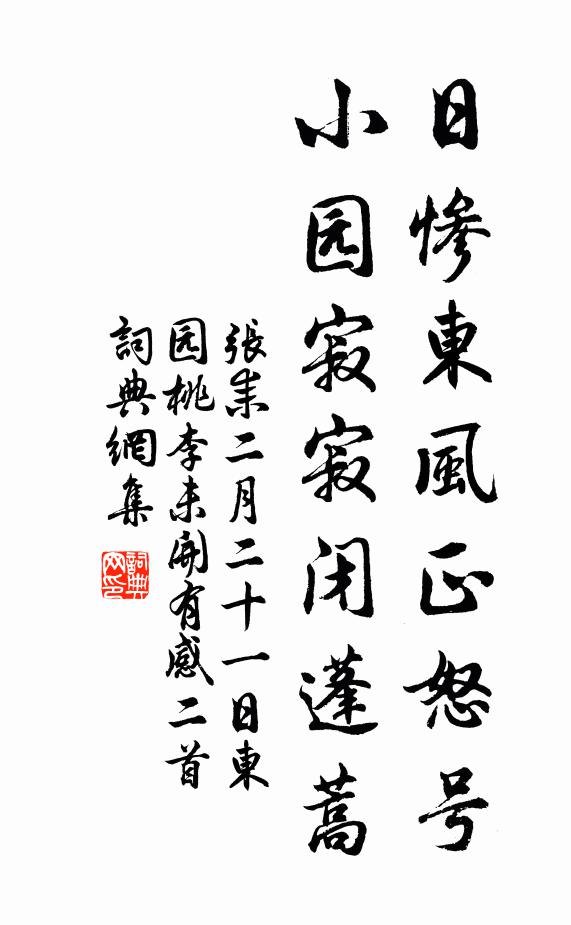 日惨東風正怒号
小园寂寂闭蓬蒿
張耒二月二十一日東
园桃李未開有感二首
詞典網集
詞典
网印